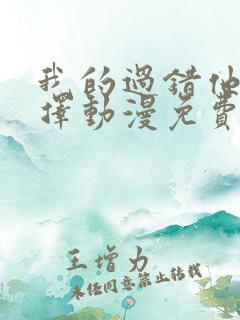 我的過錯他
擇動漫免費
王增力
未经同意禁止转载